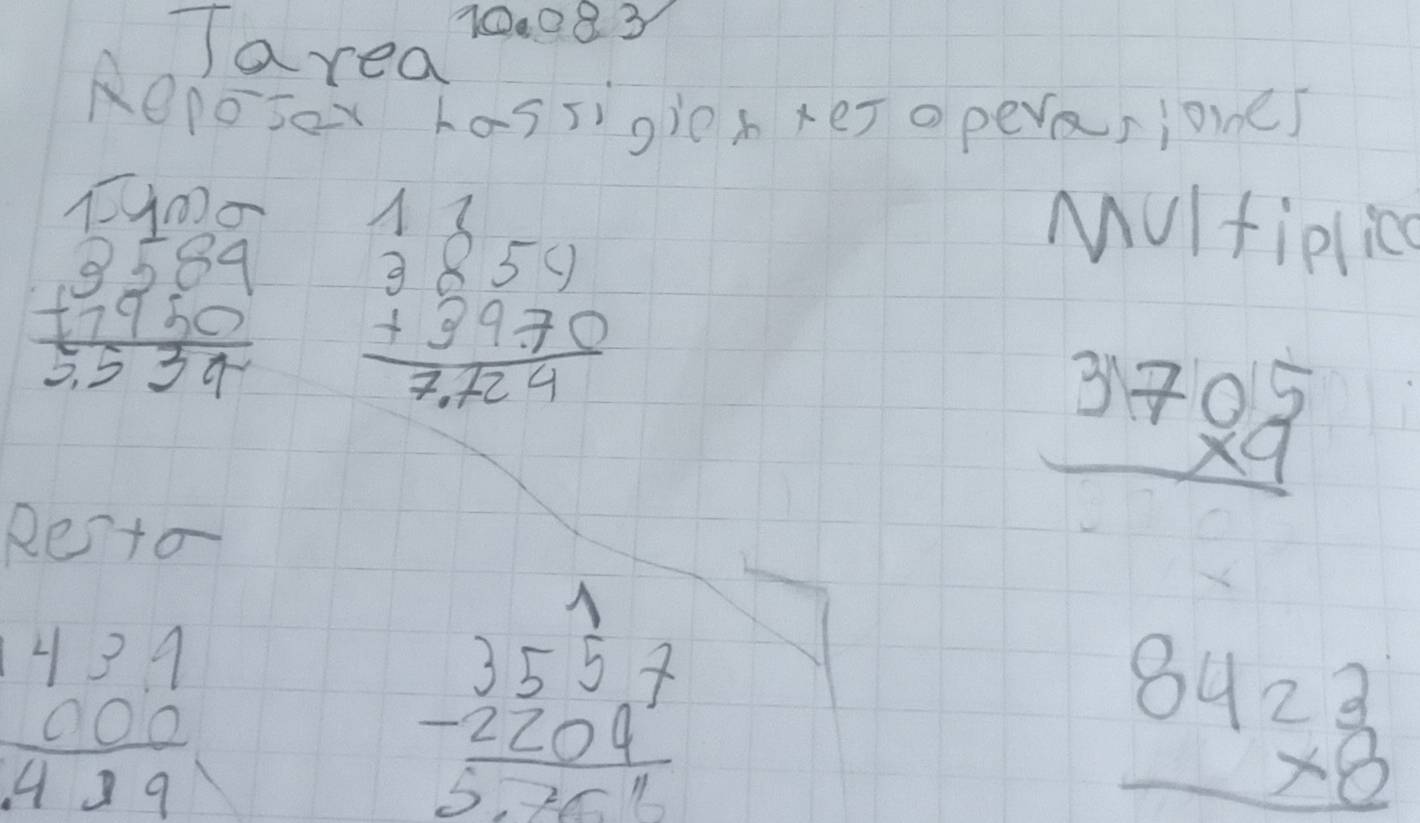 Tarea 10.083
Reposar Las sigientes operasiones
Suma
1
3589
+1950
5.539
1 1
3859
+3970
7.724
Multiplica
3705
×9
Resta
1439
000
.439
1
3557
-2209
5.76
8423
×8